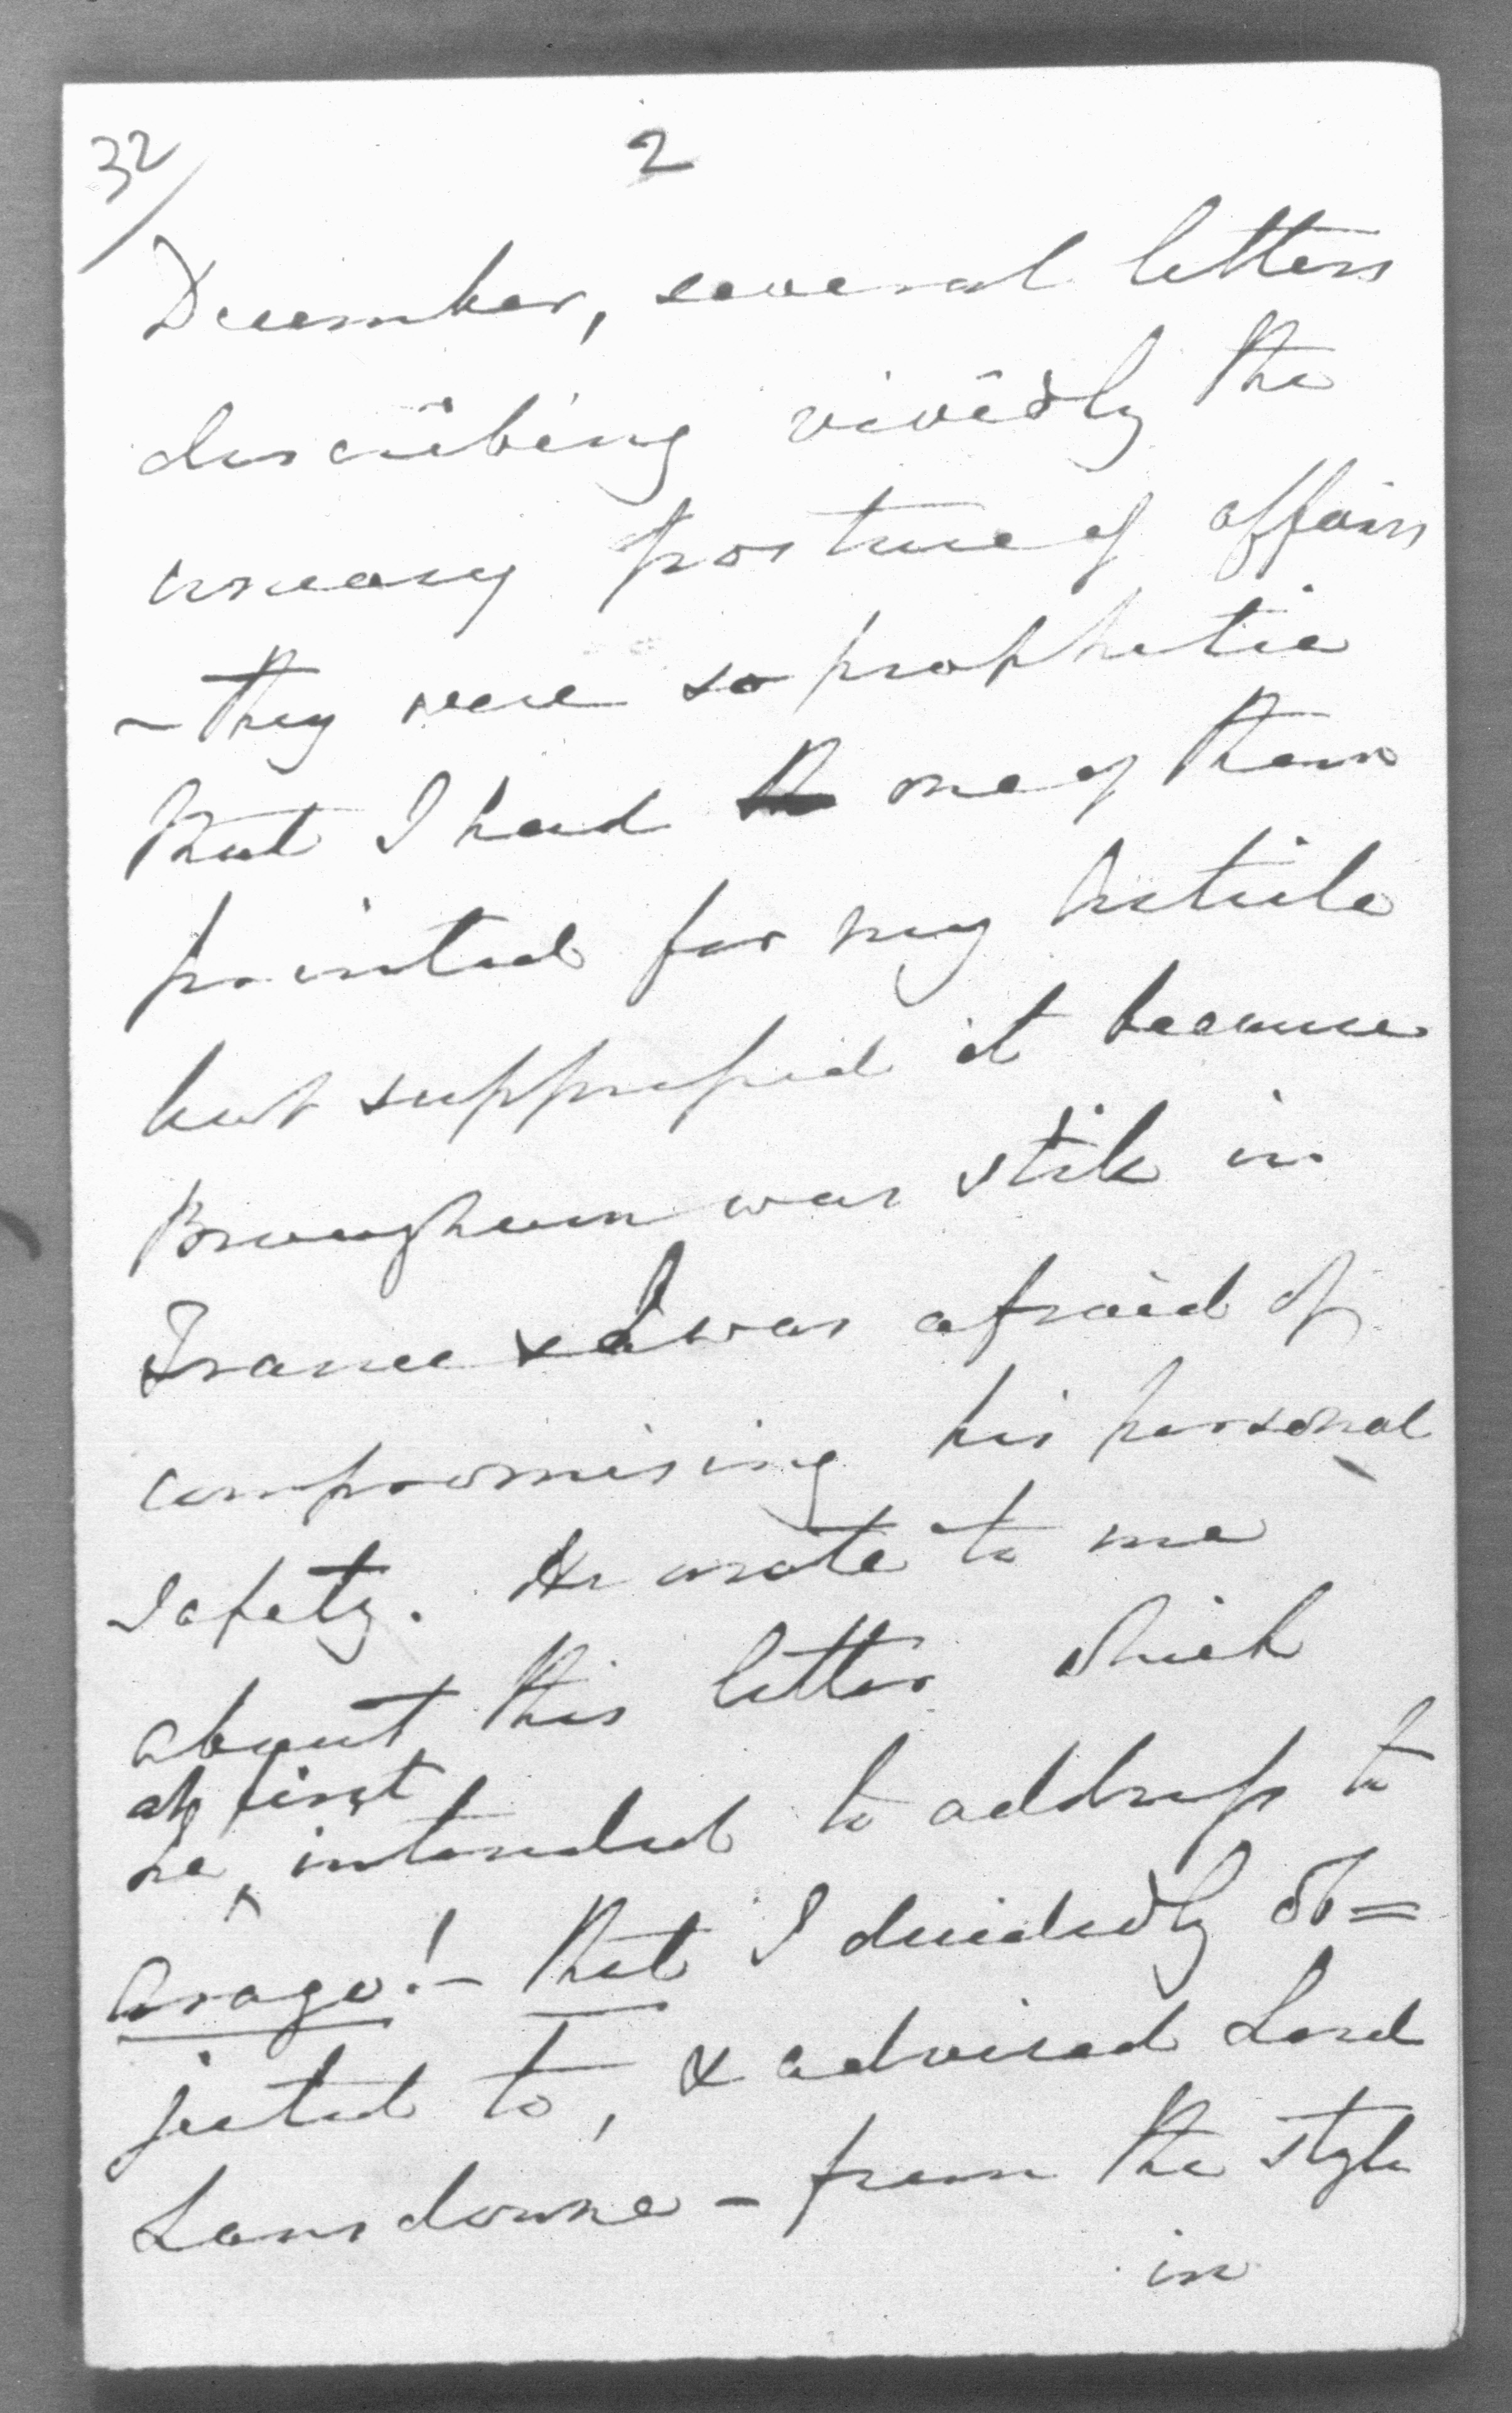 32/
2
December, several letters
describing vividly the
uneasy posture of affairs
- they were so prophetic
that I had one of them
printed for my Article
but suppressed it because
Brougham was still in
France & I was afraid of
compromising his personal
safety. He wrote to me
about this letter which
at first
he ^ intended to address to
Arago! - that I decidedly ob=
jected to, & advised Lord
Lansdowne - from the style
in